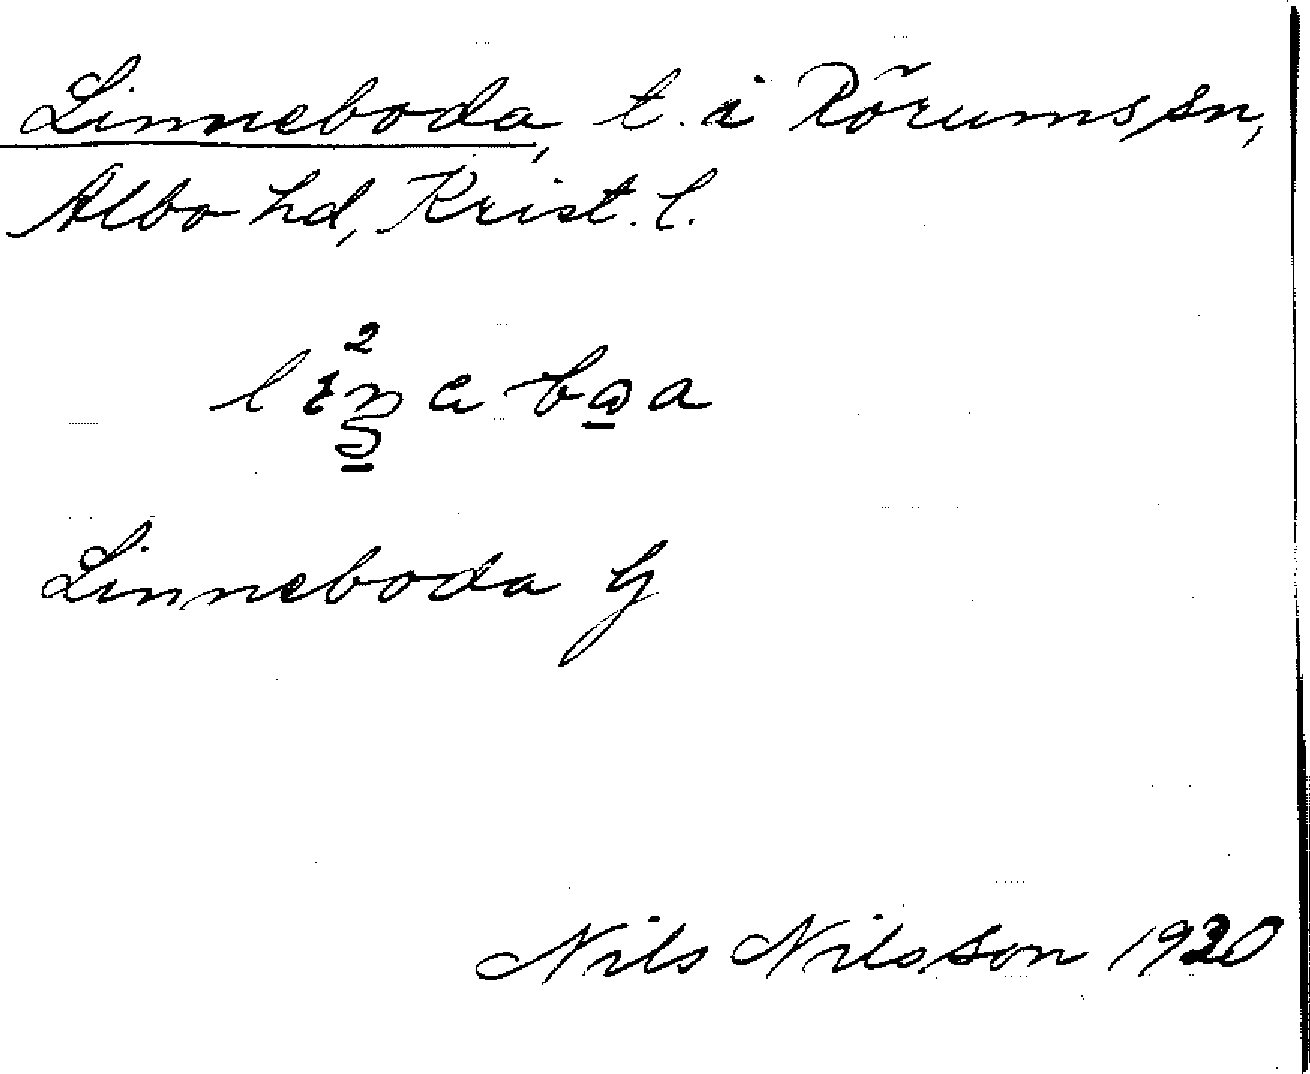 Linneboda, t. i Rörums sn,
Albo hd, Krist. l.
Linneboda G
Nils Nilsson 1920